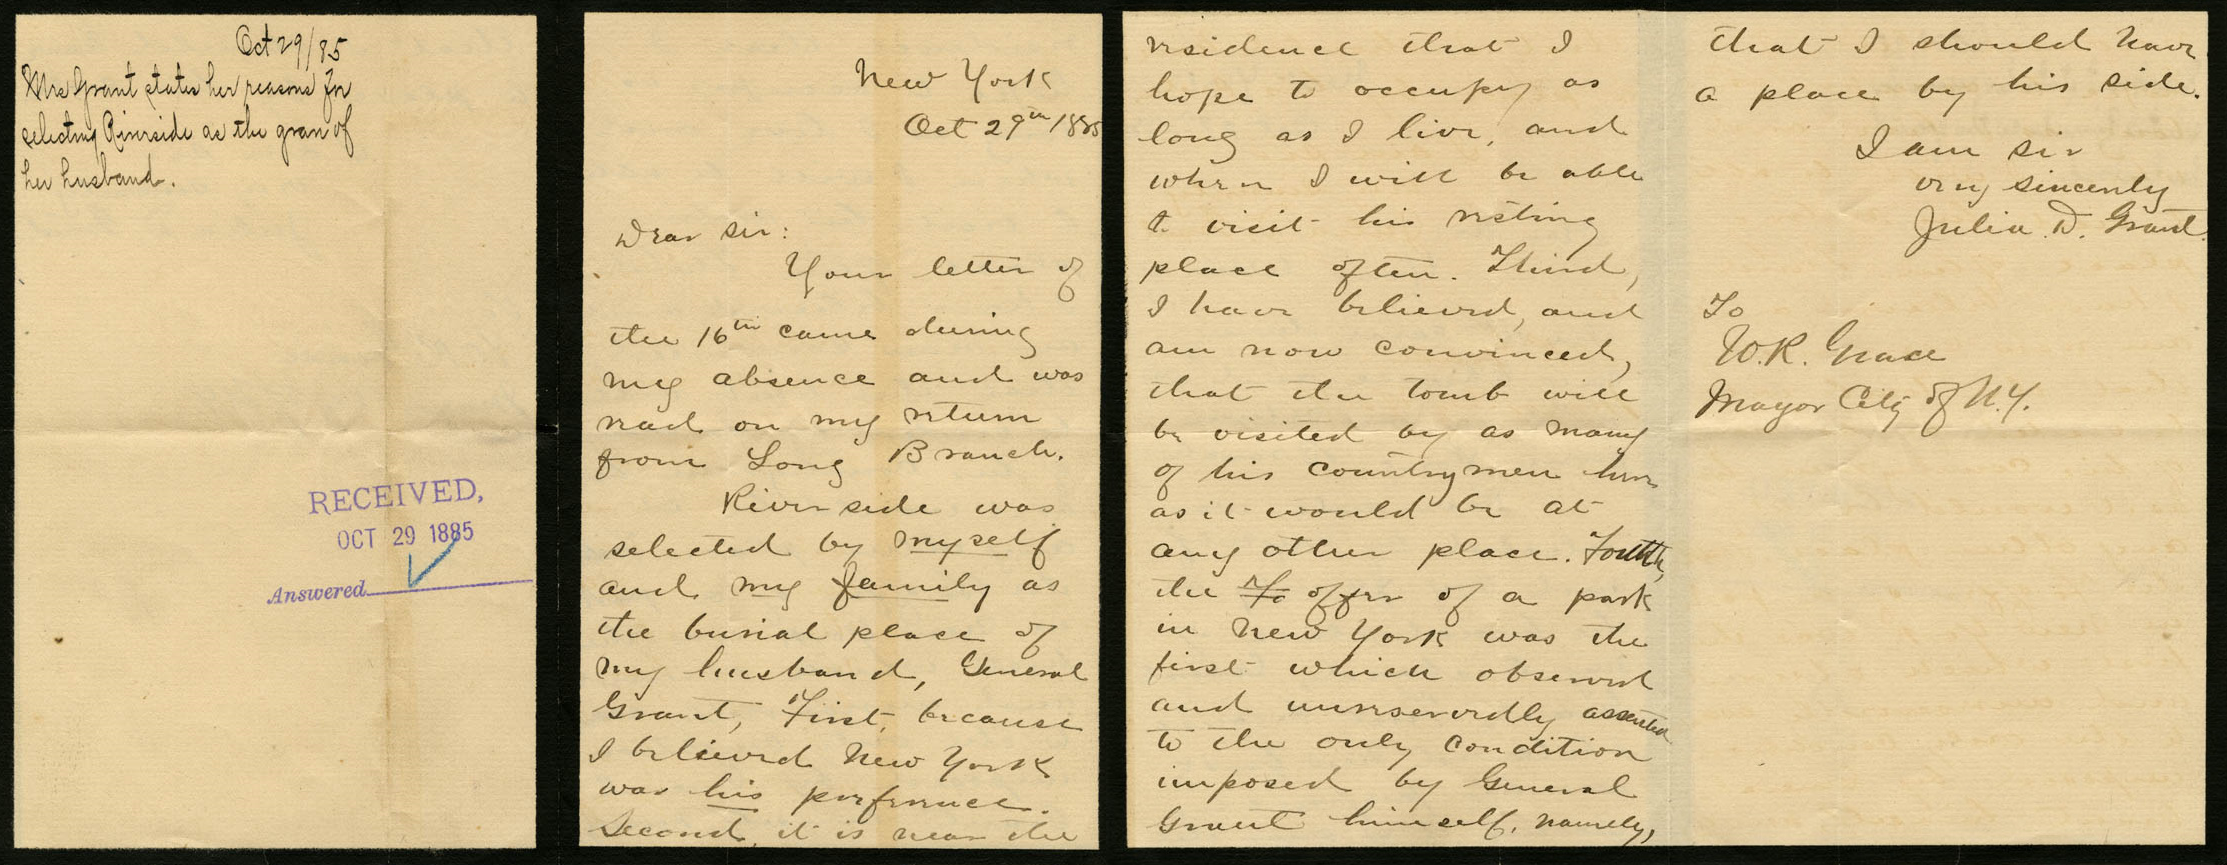 Oct 29/85
Mrs Grant states her reasons for
selecting Riverside as the grave of
her husband.
RECEIVED,
OCT 29 1885
Answered
New York
Oct 29th 1885
Dear Sir:
Your letter of
the 16th came during
my absence and was
read on my return
from Long Branch.
Riverside was
selected by myself
and my family as
the burial place of
my husband, General
Grant, First, because
I believed New York
was his preference.
Second, it is near the
residence that I
hope to occupy as
long as I live, and
where I will be able
to visit his resting
place often. Third,
I have believed, and
am now convinced,
that the tomb will
be visited by as many
of his countrymen here
as it would be at
any other place. Fourth,
the To offer of a park
in New York was the
first which observed
and unreservedly assented
to the only condition
imposed by General
Grant himself, namely,
that I should have
a place by his side.
I am sir
very sincerely
Julia D. Grant.
To
W.R. Grace
Mayor City of N.Y.